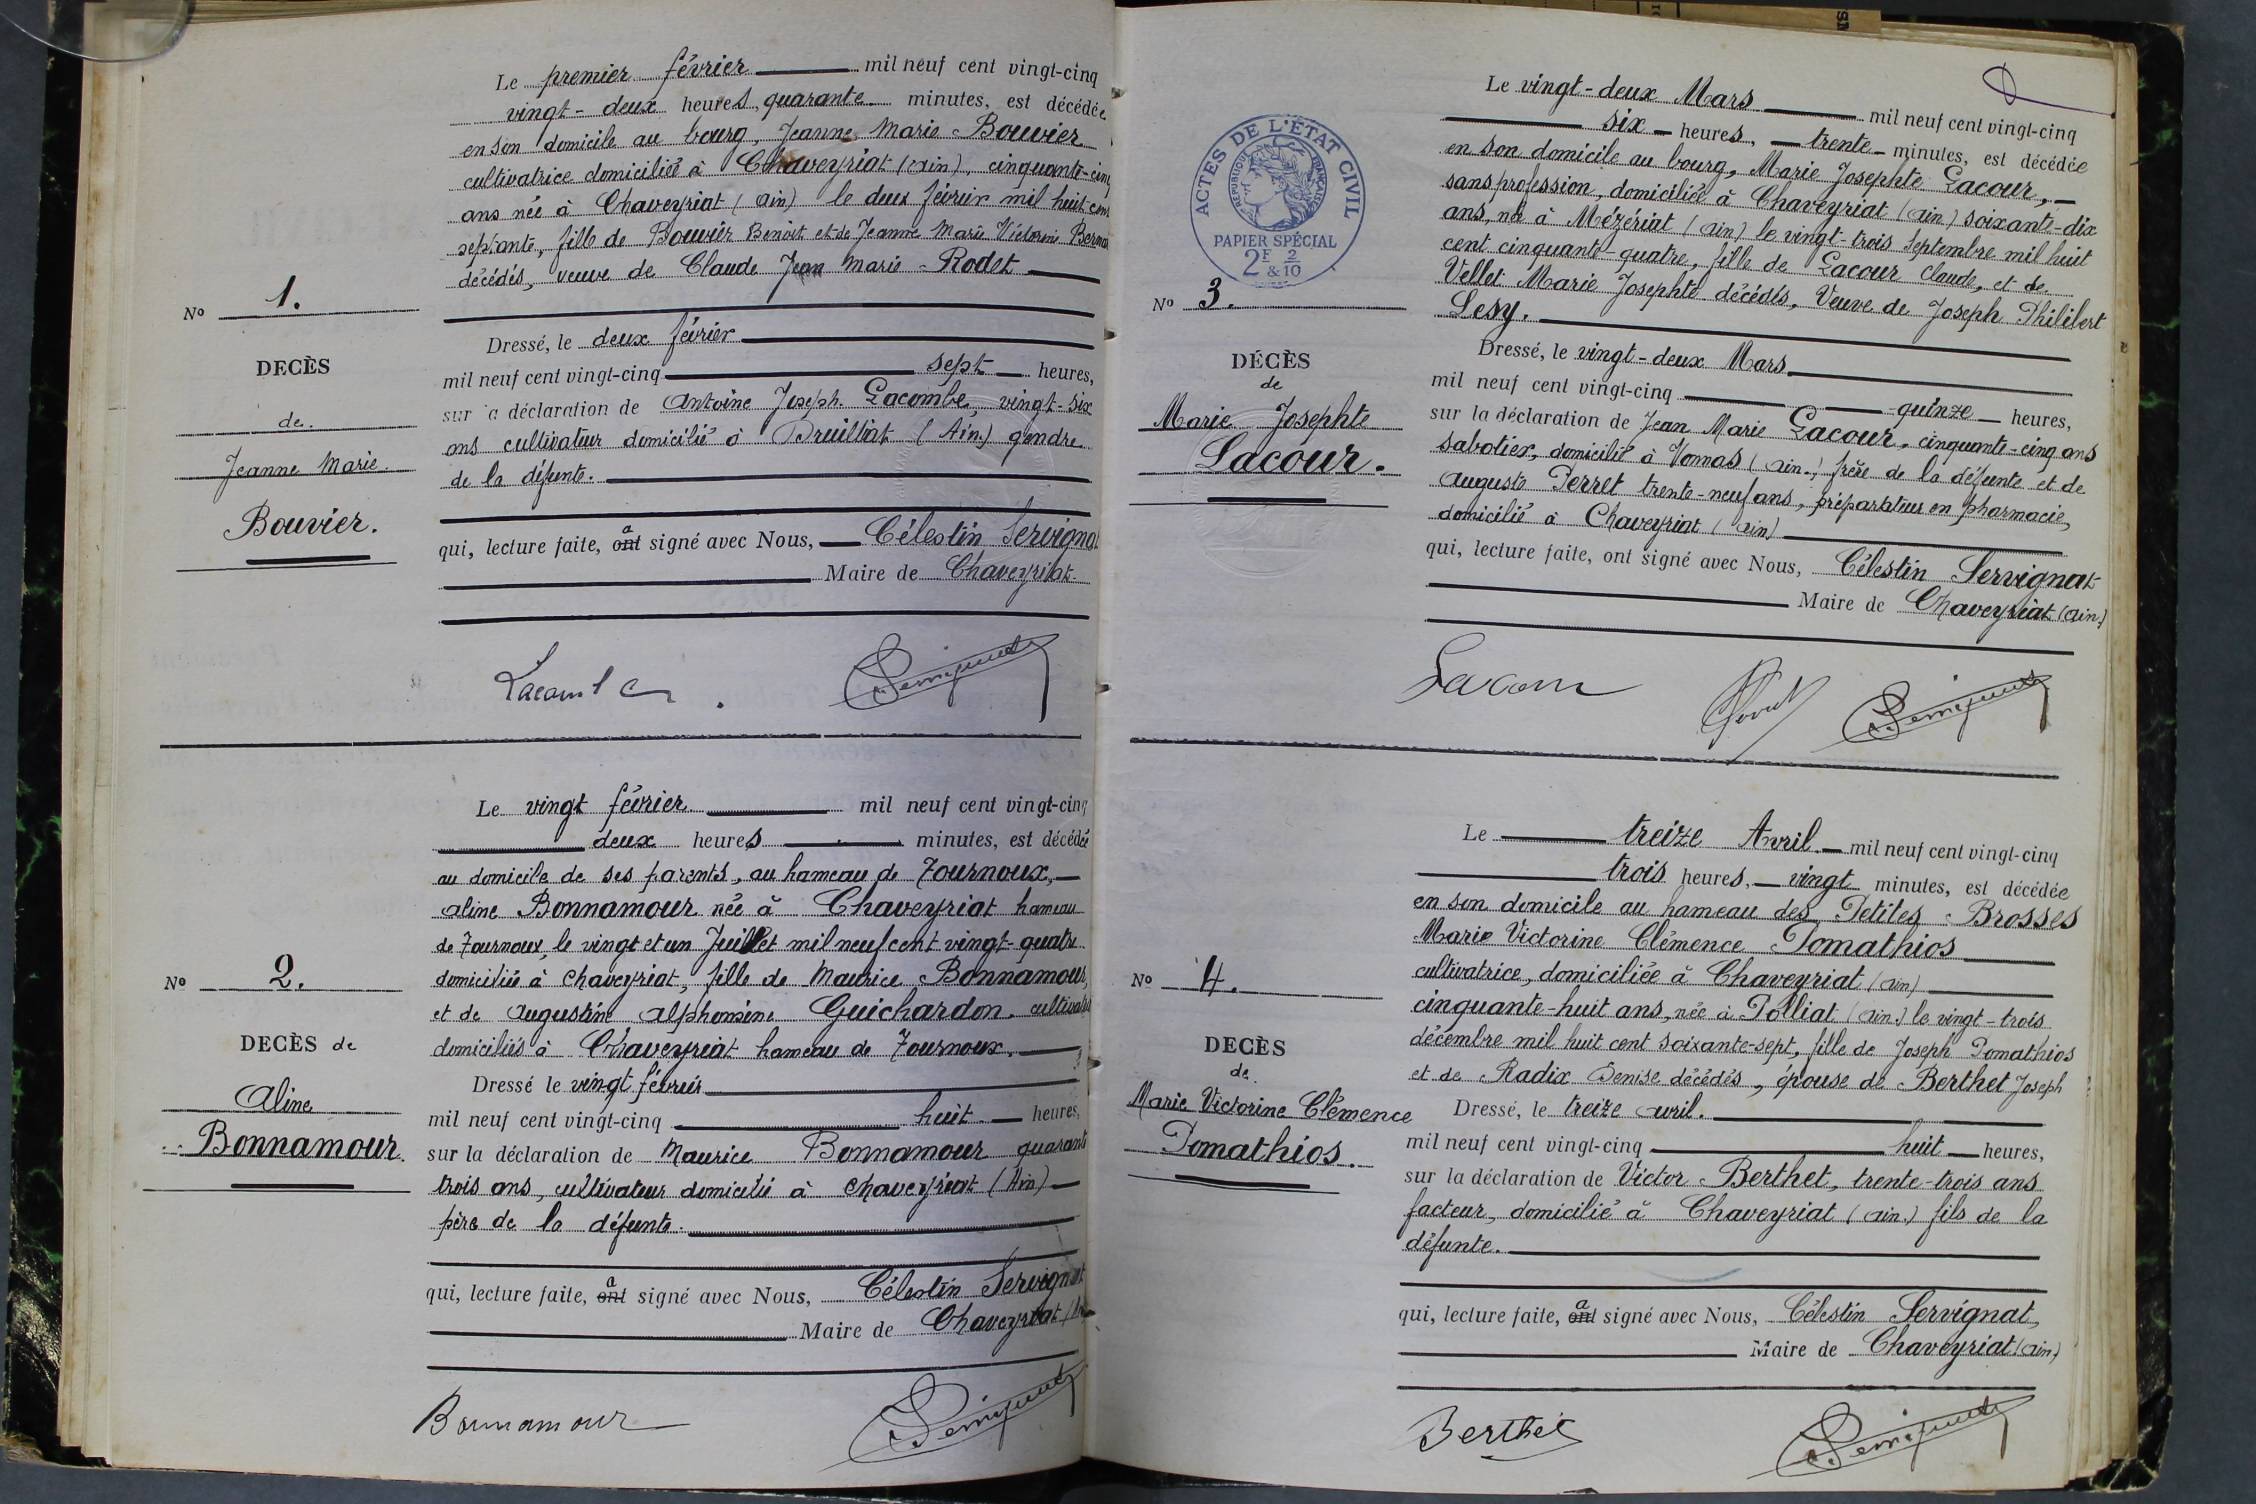 Le premier février mil neuf cent vingt-cinq
vingt-deux heures, quarante minutes, est décédée
en son domicile au bourg, Jeanne Marie Bouvier
cultivatrice domiciliée à Chaveyriat (Ain), cinquante-cinq
ans née à Chaveyriat (Ain) le deux février mil huit cent
septante, fille de Bouvier Benoit et de Jeanne Marie Victorine
décédés, veuve de Claude Jean Marie Rodet
No 1.
DECÈS
de
Jeanne Marie
Bouvier.
Dressé, le deux février
mil neuf cent vingt-cinq sept heures,
sur la déclaration de Antoine Joseph Lacombe, vingt-six
ans cultivateur domicilié à Druilliat (Ain) gendre
de la défunte.
qui, lecture faite, ont a signé avec Nous, Célestin Servignat
Maire de Chaveyriat
Lacombe
Servignat
Le vingt février mil neuf cent vingt-cinq
deux heures minutes, est décédée
au domicile de ses parents, au hameau de Fournoux,
Aline Bonnamour née à Chaveyriat hameau
de Fournoux, le vingt et un Juillet mil neuf cent vingt-quatre
domiciliée à Chaveyriat, fille de Maurice Bonnamour,
et de Augustine Alphonsine Guichardon. cultivateurs
domiciliés à Chaveyriat hameau de Fournoux.
No 2.
DECÈS de
Aline
Bonnamour.
Dressé le vingt février
mil neuf cent vingt-cinq huit heures,
sur la déclaration de Maurice Bonnamour quarante
trois ans, cultivateur domicilié à Chaveyriat (Ain)
père de la défunte.
qui, lecture faite, ont a signé avec Nous, Célestin Servignat
Maire de Chaveyriat
Bonnamour
Servignat
ACTES DE L'ÉTAT CIVIL
RÉPUBLIQUE FRANÇAISE
PAPIER SPÉCIAL
2F 2
& 10
Le vingt-deux Mars mil neuf cent vingt-cinq
six heures, trente minutes, est décédée
en son domicile au bourg, Marie Josephte Lacour,
sans profession, domiciliée à Chaveyriat (Ain) soixante-dix
ans, née à Mézériat (Ain) le vingt-trois Septembre mil huit
cent cinquante-quatre, fille de Lacour Claude, et de
Vellet Marie Josephte décédés, Veuve de Joseph Philibert
Lesy.
No 3.
DÉCÈS
de
Marie Josephte
Lacour.
Dressé, le vingt-deux Mars
mil neuf cent vingt-cinq quinze heures,
sur la déclaration de Jean Marie Lacour, cinquante-cinq ans
sabotier, domicilié à Vonnas (Ain.) frère de la défunte et de
Auguste Perret trente-neuf ans, préparateur en pharmacie,
domicilié à Chaveyriat (Ain)
qui, lecture faite, ont signé avec Nous, Célestin Servignat
Maire de Chaveyriat (Ain.)
Lacour
Servignat
Le treize Avril mil neuf cent vingt-cinq
trois heures, vingt minutes, est décédée
en son domicile au hameau des Petites Brosses
Marie Victorine Clémence Pomathios
cultivatrice, domiciliée à Chaveyriat (Ain)
cinquante-huit ans, née à Polliat (Ain.) le vingt-trois
décembre mil huit cent soixante-sept, fille de Joseph Pomathios
et de Radix Denise décédés, épouse de Berthet Joseph
No 4.
DECÈS
de
Marie Victorine Clémence
Pomathios.
Dressé, le treize avril.
mil neuf cent vingt-cinq huit heures,
sur la déclaration de Victor Berthet, trente-trois ans
facteur, domicilié à Chaveyriat (Ain.) fils de la
défunte.
qui, lecture faite, ont a signé avec Nous, Célestin Servignat,
Maire de Chaveyriat (Ain.)
Berthet
Servignat